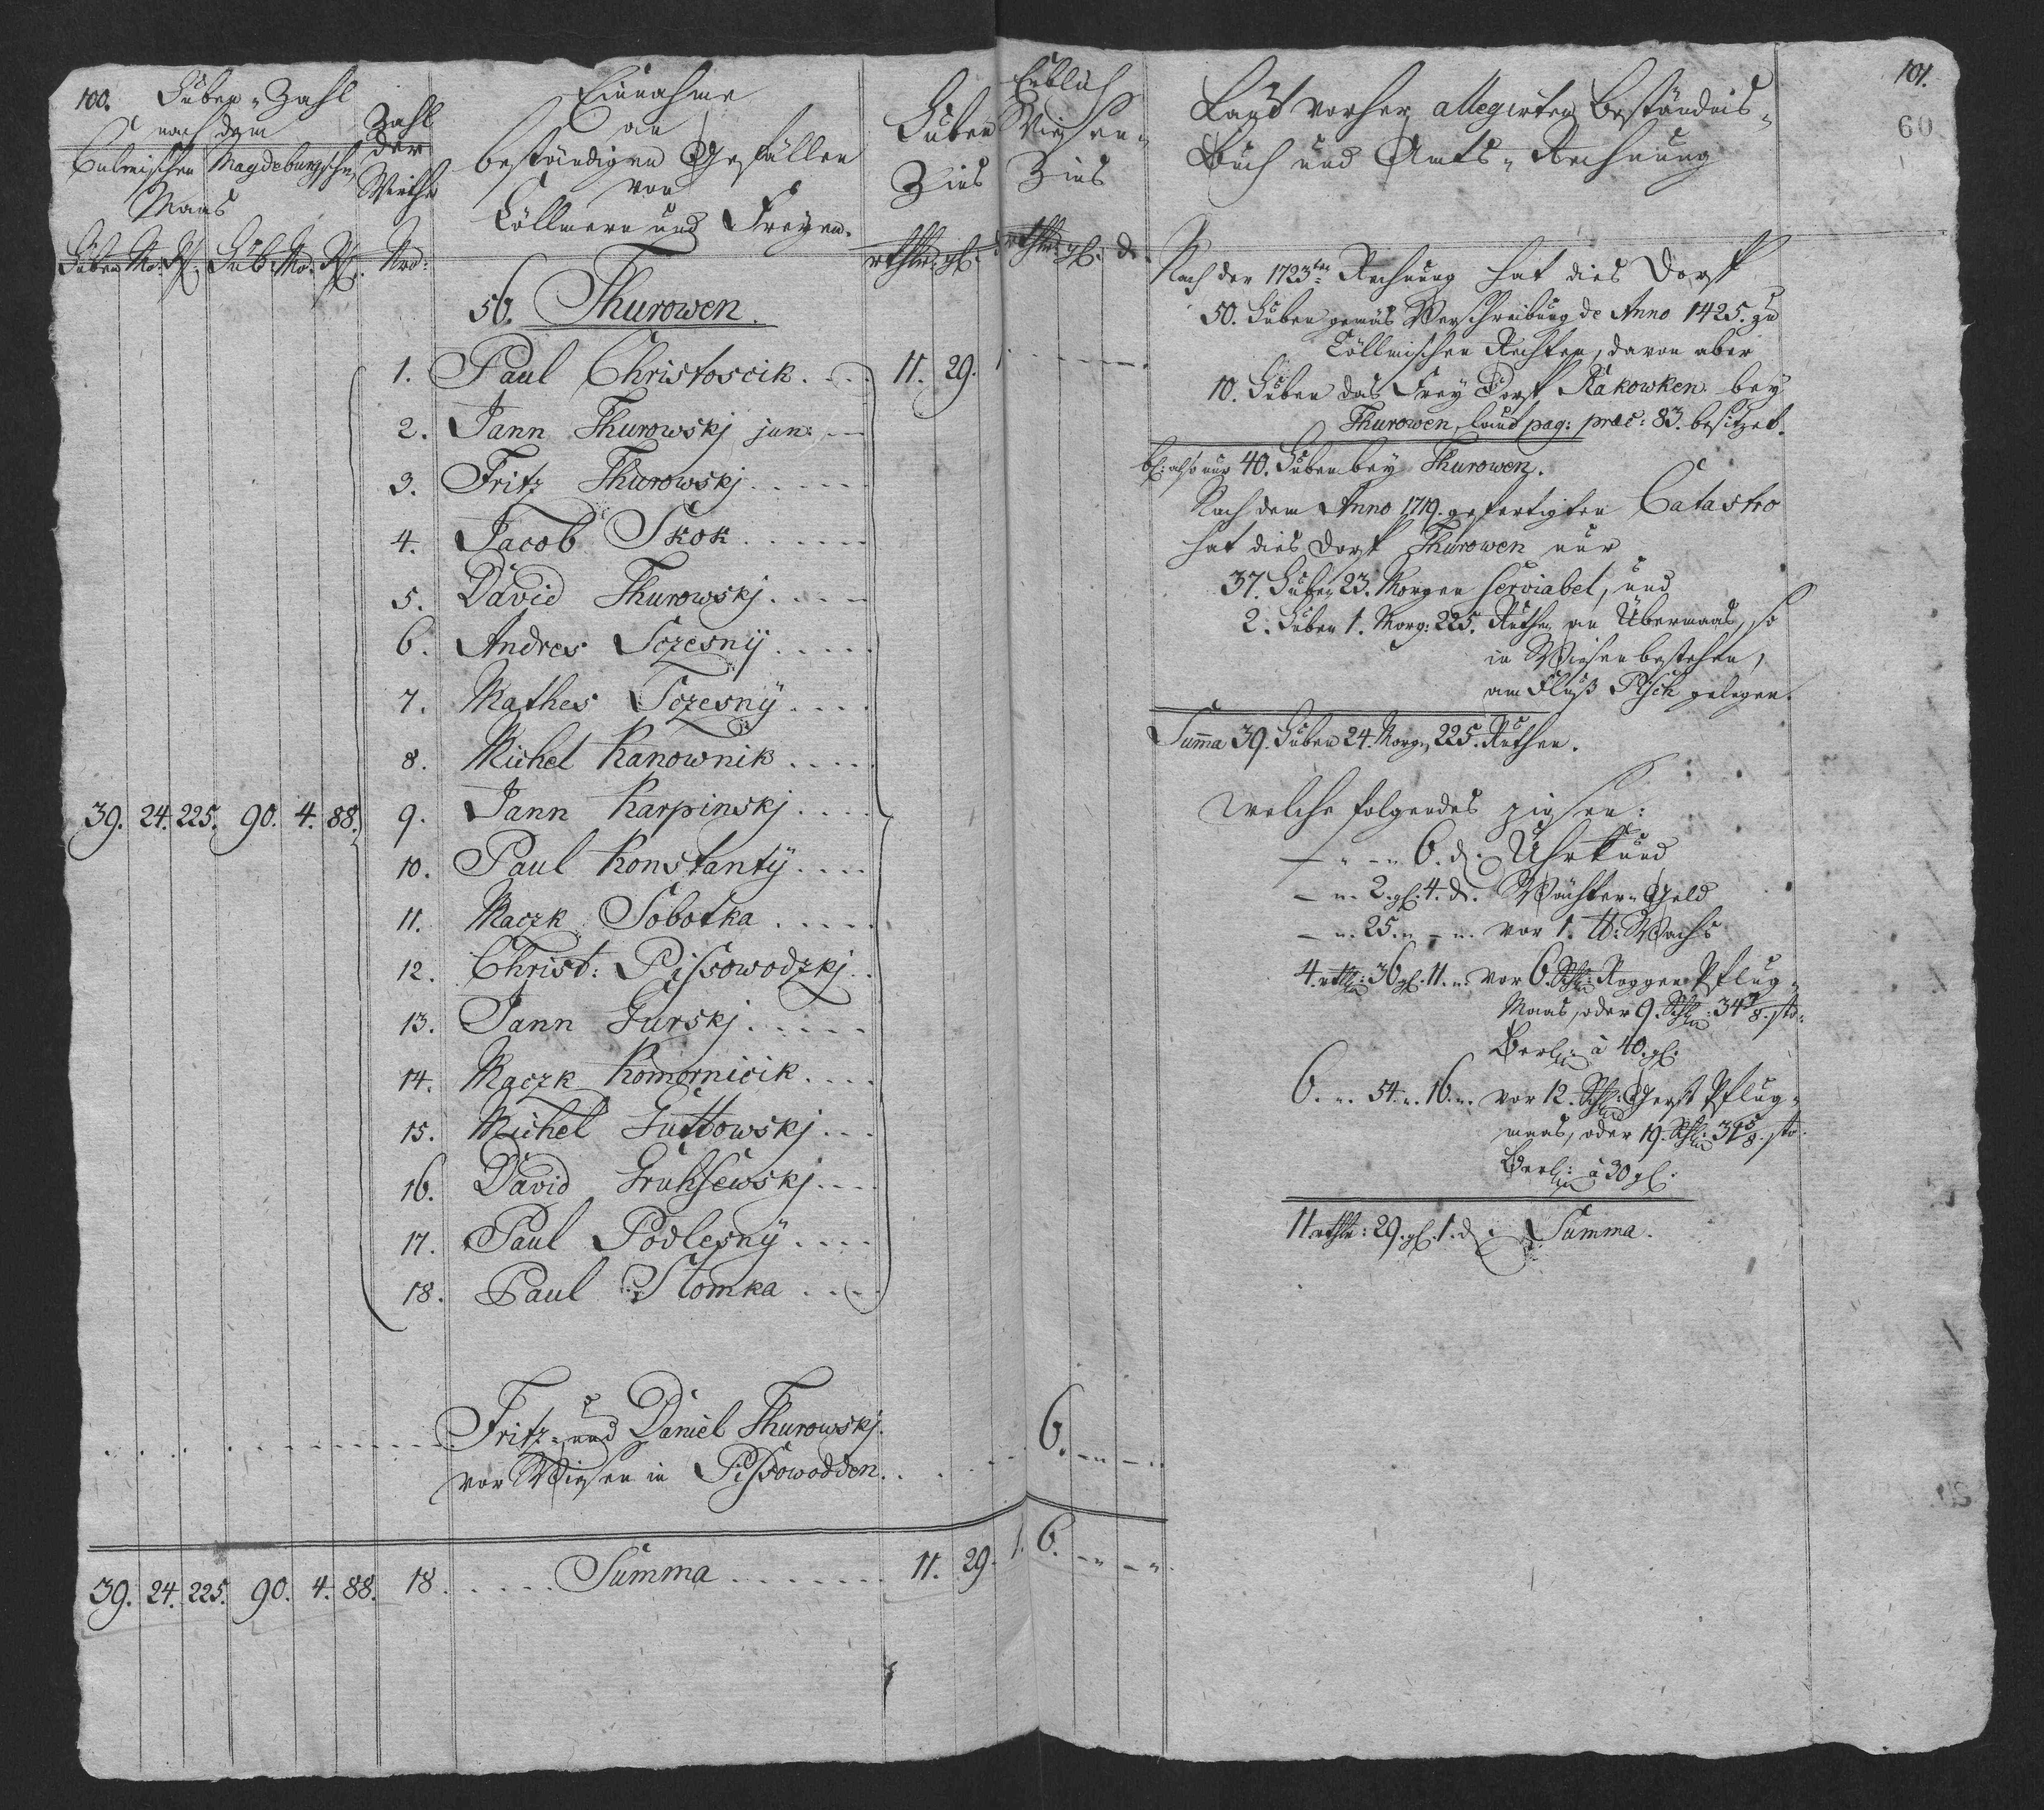 100.
Huben-Zahl
nach dem
Culmischen Magdeburgschen
Maas
Huben Mo. R. Hub: Mo. R.
Zahl
der
Wirthe
Nro:
Einnahme
an
beständigen Gefällen
von
Cöllmern und Freyen.
Huben
Zins
rthlr: gl.
Erblich
Wiesen-
Zins
rthlr: gl. d.
56. Thurowen.
1. Paul Christoscik . . . . 11. 29. 1.
2. Jann Thurowskj jun:
3. Fritz Thurowskj . . . . .
4. Jacob Skok . . . . . .
5. David Thurowskj . . . .
6. Andres Sczesnÿ . . . . .
7. Mathes Sczesnÿ . . . .
8. Michel Kanownik . . . . .
39. 24. 225. 90. 4. 88. 9. Jann Karpinskj . . . .
10. Paul Konstantÿ . . . .
11. Maczk Sobotka . . . . .
12. Christ: Pissowodzkj . .
13. Jann Gurskj . . . . .
14. Maczk Komornicik . . . .
15. Michel Guttowskj . . .
16. David Gruhsewskj . . . .
17. Paul Podlesnÿ . . . .
18. Paul Slomka . . . .
Fritz- und Daniel Thurowskj.
vor Wiesen in Pissowodden . . . . . 6. - " - . .
39. 24. 225. 90. 4. 88. 18. . . . . . Summa . . . . . . . 11. 29. 1. 6. - " - "
101.
60
Laut vorher allegirten Beständnis-
Buch und Amts-Rechnung
Nach der 1723ten Rechnung hat dies Dorf
50. Huben gemäs Verschreibung de Anno 1425. zu
Cöllmischen Rechten, davon aber
10. Huben das Frey Dorf Rakowken bey
Thurowen, laut pag: praes: 83. besitzet.
bl: also nur 40. Huben bey Thurowen.
Nach dem Anno 1719. gefertigten Catastro
hat dies Dorf Thurowen nur
37. Huben 23. Morgen serviabel, und
2. Huben 1. Morg: 225. Ruthen an Übermaas, so
in Wiesen bestehen,
am Fluß Pisch gelegen.
Summa 39. Huben 24. Morg: 225. Ruthen.
welche folgendes zinsen:
— " - " 6. d. Uhrkund
— ". 2. gl. 4. d. Wächter-Geld
— ". 25. " - ". vor 1. tt: Wachs
4. rthlr: 36 gl. 11. ". vor 6. Schfl: Roggen Pflug-
Maas, oder 9. Schfl: 34 7/8. sto:
Berl: à 40. gl.
6. ". 54. ". 16. ". vor 12. Schfl: Gerst Pflug-
maas, oder 19. Schfl: 34 5/8. sto:
Berl: à 30 gl:
11. rthlr: 29. gl. 1. d. Summa.